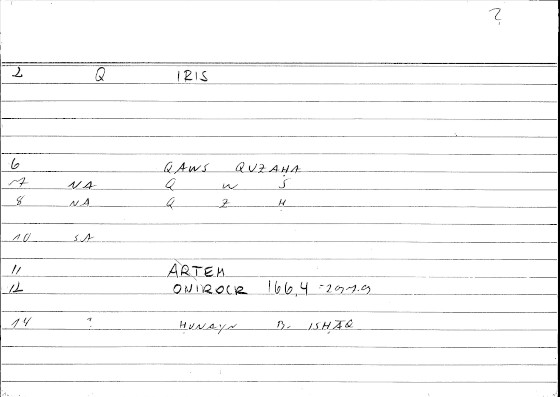 ?
2 Q IRIS
6 QAWS QUZAḤA
7 NA Q W S
8 NA Q Z Ḥ
10 SA
11 ARTEM
12 ONIROCR 166,4
14 ? ḤUNAYN B. ISḤĀQ